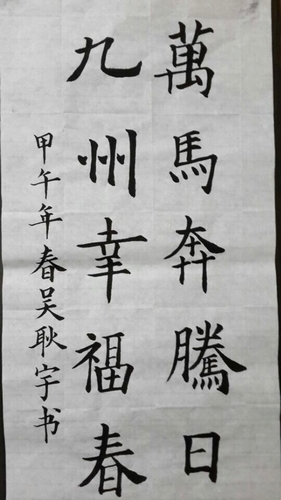 萬馬奔騰日
九州幸福春
甲午年春吴耿宇书